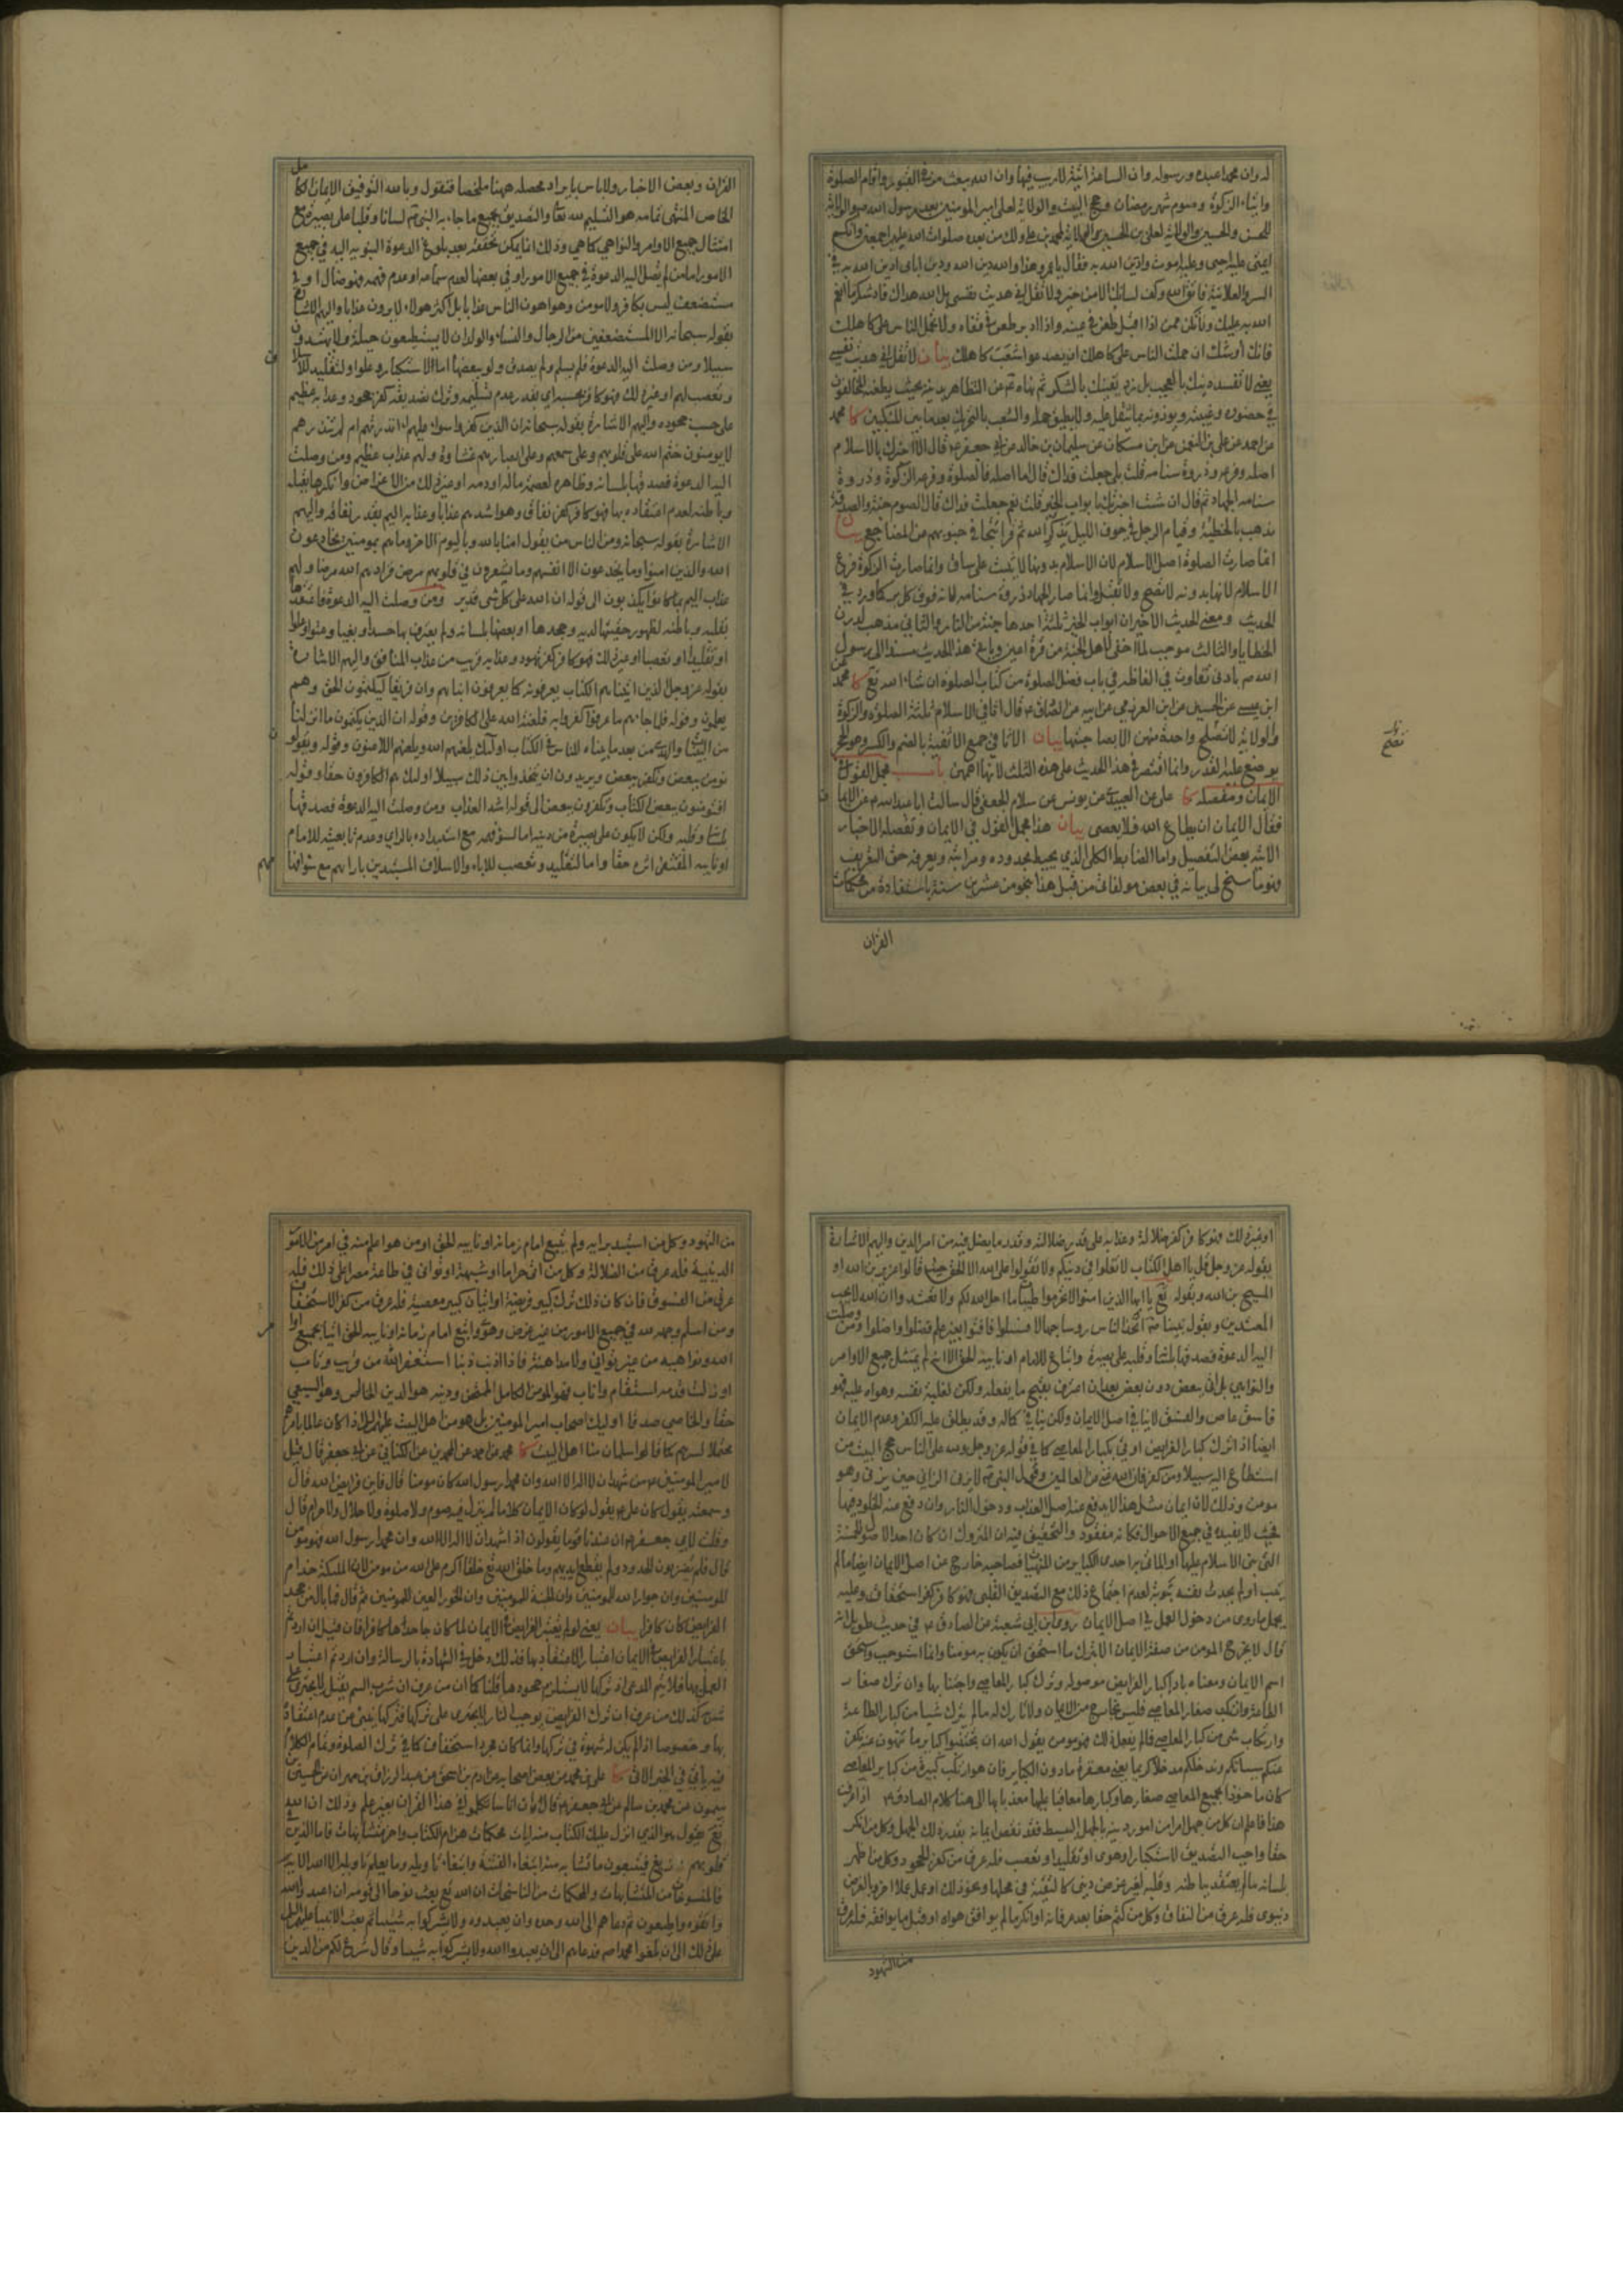 له وان محمدا عبده ورسوله وان الساعة اتية لا ريب فيها وان الله يبعث من في القبور واقام الصلوة
وايتاء الزكوة وصوم شهر رمضان وحج البيت والولاية لعلى امير المومنين بعد رسول الله ص والولاية
للحسن والحسين والولاية لعلى بن الحسين والولاية لمحمد بن على ولك من بعده صلوات الله عليهم اجمعين وانكم
ائمتى عليه احيى وعليه اموت وادين الله به فقال يا عمرو هذا والله دين الله ودين اباى ادين الله به في
السر والعلانية فاتق الله وكف لسانك الا من خير ولا تقل انى هديت نفسى بل الله هداك فاد شكر ما انعم
الله به عليك ولا تكن ممن اذا اقبل طعن في عينه واذا ادبر طعن في قفاه ولا تحمل الناس على كاهلك
فانك اوشك ان حملت الناس على كاهلك ان يصدعوا شعب كاهلك بيان لا تقل انى هديت نفسى
يعنى لا تفسد دينك بالعجب بل زد يقينك بالشكر ثم نهاه ع من التظاهر بدينه بحيث يطعنه المخالفون
في حضوره وغيبته ويوذونه بما يثقل عليه ولا يطيق حمله والشعب بالتحريك بعد ما بين المنكبين كا محمد
عن احمد عن على بن النعمن عن ابن مسكان عن سليمان بن خالد عن ابى جعفر ع قال الا اخبرك بالاسلام
اصله وفرعه وذروة سنامه قلت بلى جعلت فداك قال اما اصله فالصلوة وفرعه الزكوة وذروة
سنامه الجهاد ثم قال ان شئت اخبرتك بابواب الخير قلت نعم جعلت فداك قال الصوم جنة والصدقة
تذهب بالخطيئة وقيام الرجل في جوف الليل يذكر الله ثم قرا تتجافى جنوبهم عن المضاجع بيان
انما صارت الصلوة اصل الاسلام لان الاسلام بدونها لا يثبت على ساق وانما صارت الزكوة فرع
الاسلام لانها بدونه لا تصح ولا تقبل وانما صار الجهاد ذروة سنامه لانه فوق كل بر كما ورد في
الحديث ومعنى الحديث الاخير ان ابواب الخير ثلثة احدها جنة من النار والثانى مذهب لدرن
الخطايا والثالث موجب لما اخفى لاهل الجنة من قرة اعين وياتى هذا الحديث مسندا الى رسول
الله ص بادنى تفاوت في الفاظه في باب فضل الصلوة من كتاب الصلوة ان شاء الله تع كا محمد
ابن عيسى عن الحسين عن ابن العرزمى عن ابيه عن الصادق ع قال اثافى الاسلام ثلثة الصلوة والزكوة
والولاية لا تصلح واحدة منهن الا بصاحبتها بيان الاثافى جمع الاثفية بالضم والكسر وهو الحجر
يوضع عليه القدر وانما اقتصر في هذا الحديث على هذه الثلث لانها اهمهن باب مجمل القول في
الايمان ومفصله كا على عن العبيدى عن يونس عن سلام الجعفى قال سالت ابا عبد الله ع عن الايمان
فقال الايمان ان يطاع الله فلا يعصى بيان هذا مجمل القول في الايمان وتفصيله الاخبار
الاتية بعض التفصيل واما الضابط الكلى الذى يحيط بحدوده ومراتبه ويعرفه حق التعريف
فهو ما سنح لى بيانه في بعض مولفاتى من قبل هذا بنحو من عشرين سنة باستفادة من محكمات
القران
تصح
القران وبعض الاخبار ولا باس بايراد محصله ههنا ملخصا فنقول وبالله التوفيق الايمان الكامل
الخالص المنتهى تمامه هو التسليم لله تعا والتصديق بجميع ما جاء به النبى ص لسانا وقلبا على بصيرة مع
امتثال جميع الاوامر والنواهى كما هى وذلك انما يمكن تحققه بعد بلوغ الدعوة النبويه اليه في جميع
الامور اما من لم تصل اليه الدعوة في جميع الامور او في بعضها لعدم سماعه او عدم فهمه فهو ضال او
مستضعف ليس بكافر ولا مومن وهو اهون الناس عذابا بل اكثر هولاء لا يرون عذابا واليهم الاشارة
بقوله سبحانه الا المستضعفين من الرجال والنساء والولدان لا يستطيعون حيلة ولا يهتدون
سبيلا ومن وصلت اليه الدعوة فلم يسلم ولم يصدق ولو ببعضها اما لاستكبار وعلو او لتقليد للاسلاف
وتعصب لهم او غير ذلك فهو كافر بحسبه اى بقدر عدم تسليمه وترك تصديقه كفر جحود وعذابه عظيم
على حسب جحوده واليهم الاشارة بقوله سبحانه ان الذين كفروا سواء عليهم اانذرتهم ام لم تنذرهم
لا يومنون ختم الله على قلوبهم وعلى سمعهم وعلى ابصارهم غشاوة ولهم عذاب عظيم ومن وصلت
اليه الدعوة فصدقها بلسانه وظاهره لعصمة ماله او دمه او غير ذلك من الاغراض وانكرها بقلبه
وباطنه لعدم اعتقاده بها فهو كافر كفر نفاق وهو اشدهم عذابا وعذابه اليم بقدر نفاقه واليهم
الاشارة بقوله سبحانه ومن الناس من يقول امنا بالله وباليوم الاخر وما هم بمومنين يخادعون
الله والذين امنوا وما يخدعون الا انفسهم وما يشعرون في قلوبهم مرض فزادهم الله مرضا ولهم
عذاب اليم بما كانوا يكذبون الى قوله ان الله على كل شى قدير ومن وصلت اليه الدعوة فاعتقدها
بقلبه وباطنه لظهور حقيتها لديه وجحدها او بعضها بلسانه ولم يعترف بها حسدا وبغيا وعتوا وعلوا
او تقليدا او تعصبا او غير ذلك فهو كافر كفر تهود وعذابه قريب من عذاب المنافق واليهم الاشارة
بقوله عز وجل الذين اتيناهم الكتاب يعرفونه كما يعرفون ابناءهم وان فريقا ليكتمون الحق وهم
يعلمون وقوله فلما جاءهم ما عرفوا كفروا به فلعنة الله على الكافرين وقوله ان الذين يكتمون ما انزلنا
من البينات والهدى من بعد ما بيناه للناس في الكتاب اولئك يلعنهم الله ويلعنهم اللاعنون وقوله ويقولون
نومن ببعض ونكفر ببعض ويريدون ان يتخذوا بين ذلك سبيلا اولئك هم الكافرون حقا وقوله
افتومنون ببعض الكتاب وتكفرون ببعض الى قوله اشد العذاب ومن وصلت اليه الدعوة فصدقها
بلسانه وقلبه ولكن لا يكون على بصيرة من دينه اما لسوء فهمه مع استبداده بالراى وعدم تابعيته للامام
او نايبه المقتفى اثره حقا واما لتقليد وتعصب للاباء والاسلاف المستبدين بارائهم مع سوء افهامهم
او غير ذلك فهو كافر كفر ضلالة وعذابه على قدر ضلالته وقدر ما يضل فيه من امر الدين واليهم الاشارة
بقوله عز وجل قل يا اهل الكتاب لا تغلوا في دينكم ولا تقولوا على الله الا الحق حيث قالوا عزير بن الله او
المسيح بن الله وبقوله تع يا ايها الذين امنوا لا تحرموا طيبات ما احل الله لكم ولا تعتدوا ان الله لا يحب
المعتدين وبقول نبينا ص اتخذ الناس روسا جهالا فسئلوا فافتوا بغير علم فضلوا واضلوا ومن وصلت
اليه الدعوة فصدقها بلسانه وقلبه على بصيرة واتباع للامام او نايبه الحق الا انه لم يمتثل جميع الاوامر
والنواهى بل اتى ببعض دون بعض بعد ان اعترف بقبح ما يفعله ولكن لغلبة نفسه وهواه عليه فهو
فاسق عاص والفسق لا ينافى اصل الايمان ولكن ينافى كماله وقد يطلق عليه الكفر وعدم الايمان
ايضا اذا ترك كبار الفرايض او اتى بكبار المعاصى كما في قوله عز وجل ولله على الناس حج البيت من
استطاع اليه سبيلا ومن كفر فان الله غنى عن العالمين وقول النبى ص لا يزنى الزانى حين يزنى وهو
مومن وذلك لان ايمان مثل هذا لا يدفع عنه اصل العذاب ودخول النار وان دفع عنه الخلود فيها
فحيث لا يفيده في جميع الاحوال فكانه مفقود والتحقيق فيه ان المتروك ان كان احد الاصول الخمسة
التى بنى الاسلام عليها او الماتى به احدى الكباير من المنهيات فصاحبه خارج عن اصل الايمان ايضا ما لم
يتب او لم يحدث نفسه بتوبة لعدم اجتماع ذلك مع التصديق القلبى فهو كافر كفر استخفاف وعليه
يحمل ما روى من دخول العمل في اصل الايمان روى ابن ابى شعبة عن الصادق ع في حديث طويل انه
قال لا يخرج المومن من صفة الايمان الا بترك ما استحق ان يكون به مومنا وانما استوجب واستحق
اسم الايمان ومعناه باداء كبار الفرايض موصولة وترك كبار المعاصى واجتنابها وان ترك صغار
الطاعة وارتكب صغار المعاصى فليس بخارج من الايمان ولا تارك له ما لم يترك شيئا من كبار الطاعة
وارتكاب شى من كبار المعاصى فما لم يفعل ذلك فهو مومن يقول الله ان تجتنبوا كباير ما تنهون عنه نكفر
عنكم سيئاتكم وندخلكم مدخلا كريما يعنى مغفرة ما دون الكباير فان هو ارتكب كبيرة من كباير المعاصى
كان ماخوذا بجميع المعاصى صغارها وكبارها معاقبا عليها معذبا بها الى هنا كلام الصادق ع اذا عرفت
هذا فاعلم ان كل من جهل امرا من امور دينه بالجهل البسيط فقد نقص ايمانه بقدر ذلك الجهل وكل من انكر
حقا واجب التصديق لاستكبار او هوى او تقليد او تعصب فله عرق من كفر الجحود وكل من اظهر
بلسانه ما لم يعتقد بباطنه وقلبه لغير غرض دينى كالتقية في محلها ونحو ذلك او عمل عملا اخرويا لغرض
دنيوى فله عرق من النفاق وكل من كتم حقا بعد عرفانه او انكر ما لم يوافق هواه او قبل ما يوافقه فله عرق
من التهود
من التهود وكل من استبد برايه ولم يتبع امام زمانه او نايبه الحق او من هو اعلم منه في امر من الامور
الدينية فله عرق من الضلالة وكل من اتى حراما او شبهة او توانى في طاعة مصرا على ذلك فله
عرق من الفسوق فان كان ذلك ترك كبير فريضة او اتيان كبير معصية فله عرق من كفر الاستخفاف
ومن اسلم وجهه لله في جميع الامور من غير غرض وهوى واتبع امام زمانه او نايبه الحق اتيا بجميع اوامر
الله ونواهيه من غير توانى ولا مداهنة فاذا اذنب ذنبا استغفر الله من قريب وتاب
او زلت قدمه استقام واناب فهو المومن الكامل الممتحن ودينه هو الدين الخالص وهو الشيعى
حقا والخاصى صدقا اوليك اصحاب امير المومنين بل هو من اهل البيت عليهم السلام اذا كان عالما بامرهم
محتملا لسرهم كما قالوا سلمان منا اهل البيت كا محمد عن احمد عن محمد بن عن الكنانى عن ابى جعفر ع قال قيل
لامير المومنين ع من شهد ان لا اله الا الله وان محمدا رسول الله كان مومنا قال فاين فرايض الله قال
وسمعته يقول كان على ع يقول لو كان الايمان كلاما لم ينزل فيه صوم ولا صلوة ولا حلال ولا حرام قال
وقلت لابى جعفر ع ان عندنا قوما يقولون اذا شهد ان لا اله الا الله وان محمدا رسول الله فهو مومن
قال فلم يضربون الحدود ولم يقطع ايديهم وما خلق الله تع خلقا اكرم على الله من مومن لان الملئكة خدام
المومنين وان جوار الله للمومنين وان الجنة للمومنين وان الحور العين للمومنين ثم قال فما بال من جحد
الفرايض كان كافرا بيان يعنى لو لم يعتبر الفرايض في الايمان لما كان جاحدها كافرا فان قيل ان اردتم
باعتبار الفرايض في الايمان اعتبار الاعتقاد بها فذلك دخل في الشهادة بالرسالة وان اردتم اعتبار
العمل بها فلا يتم المدعى اذ تركها لا يستلزم جحودها قلنا كما ان من عرف ان شرب السم يقتل لا يجترى على
شربه كذلك من عرف ان ترك الفرايض يوجب النار لا يجترى على تركها فتركها ينبى عن عدم اعتقاده
بها وخصوصا اذا لم يكن له شهوة في تركها وانما كان مجرد استخفاف كما في ترك الصلوة وتمام الكلام
فيه ياتى في الخبر الاتى كا على بن محمد عن بعض اصحابه عن ادم بن اسحق عن عبد الرزاق بن مهران عن الحسين بن
ميمون عن محمد بن سالم عن ابى جعفر ع قال ان اناسا تكلموا في هذا القران بغير علم وذلك ان الله
تع يقول هو الذى انزل عليك الكتاب منه ايات محكمات هن ام الكتاب واخر متشابهات فاما الذين في
قلوبهم زيغ فيتبعون ما تشابه منه ابتغاء الفتنة وابتغاء تاويله وما يعلم تاويله الا الله الاية
فالمنسوخات من المتشابهات والمحكمات من الناسخات ان الله تع بعث نوحا الى قومه ان اعبدوا الله
واتقوه واطيعون ثم دعاهم الى الله وحده وان يعبدوه ولا يشركوا به شيئا ثم بعث الانبياء عليهم السلم
على ذلك الى ان بلغوا محمدا ص فدعاهم الى ان يعبدوا الله ولا يشركوا به شيئا وقال شرع لكم من الدين